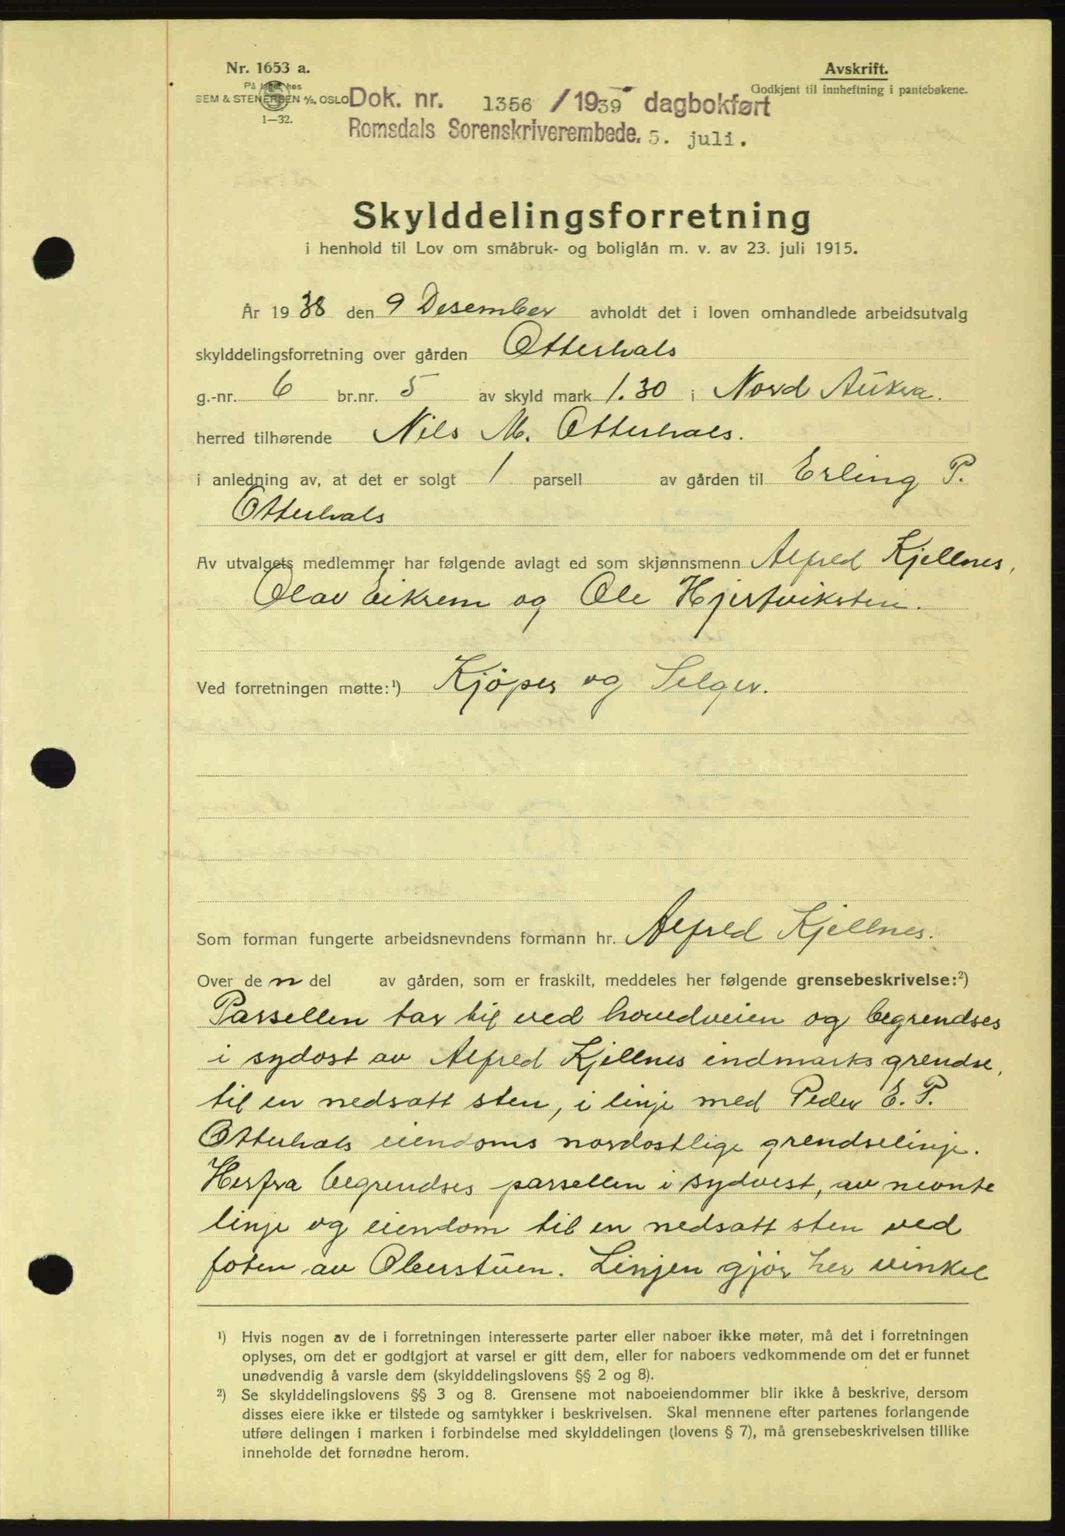 Nr. 1653 a.
På lager hos
SEM & STENERSEN A/S, OSLO
1—32.
Avskrift.
Godkjent til innheftning i pantebøkene.
Dok. nr. 1356 / 1939 dagbokført
Romsdals Sorenskriverembede. 5. juli.
Skylddelingsforretning
i henhold til Lov om småbruk- og boliglån m. v. av 23. juli 1915.
År 1938 den 9 Desember avholdt det i loven omhandlede arbeidsutvalg
skylddelingsforretning over gården Otterhals
g.-nr. 6 br.nr. 5 av skyld mark 1.30 i Nord Aukra.
herred tilhørende Nils M. Otterhals.
i anledning av, at det er solgt 1 parsell av gården til Erling P.
Otterhals
Av utvalgets medlemmer har følgende avlagt ed som skjønnsmenn Alfred Kjellnes,
Olav Eikrem og Ole Hjertviksten.
Ved forretningen møtte:¹) Kjøper og Selger.
Som forman fungerte arbeidsnevndens formann hr. Alfred Kjellnes.
Over den del av gården, som er fraskilt, meddeles her følgende grensebeskrivelse:²)
Parsellen tar til ved hovedveien og begrendses
i sydost av Alfred Kjellnes indmarks grendse,
til en nedsatt sten, i linje med Peder E. P.
Otterhals eiendoms nordostlige grendselinje.
Herfra begrendses parsellen i sydvest, av nevnte
linje og eiendom til en nedsatt sten ved
foten av Oberstuen. Linjen gjør her vinkel
¹) Hvis nogen av de i forretningen interesserte parter eller naboer ikke møter, må det i forretningen
oplyses, om det er godtgjort at varsel er gitt dem, eller for naboers vedkommende om det er funnet
unødvendig å varsle dem (skylddelingslovens §§ 2 og 8).
²) Se skylddelingslovens §§ 3 og 8. Grensene mot naboeiendommer blir ikke å beskrive, dersom
disses eiere ikke er tilstede og samtykker i beskrivelsen. Skal mennene efter partenes forlangende
utføre delingen i marken i forbindelse med skylddelingen (lovens § 7), må grensebeskrivelsen tillike
inneholde det fornødne herom.